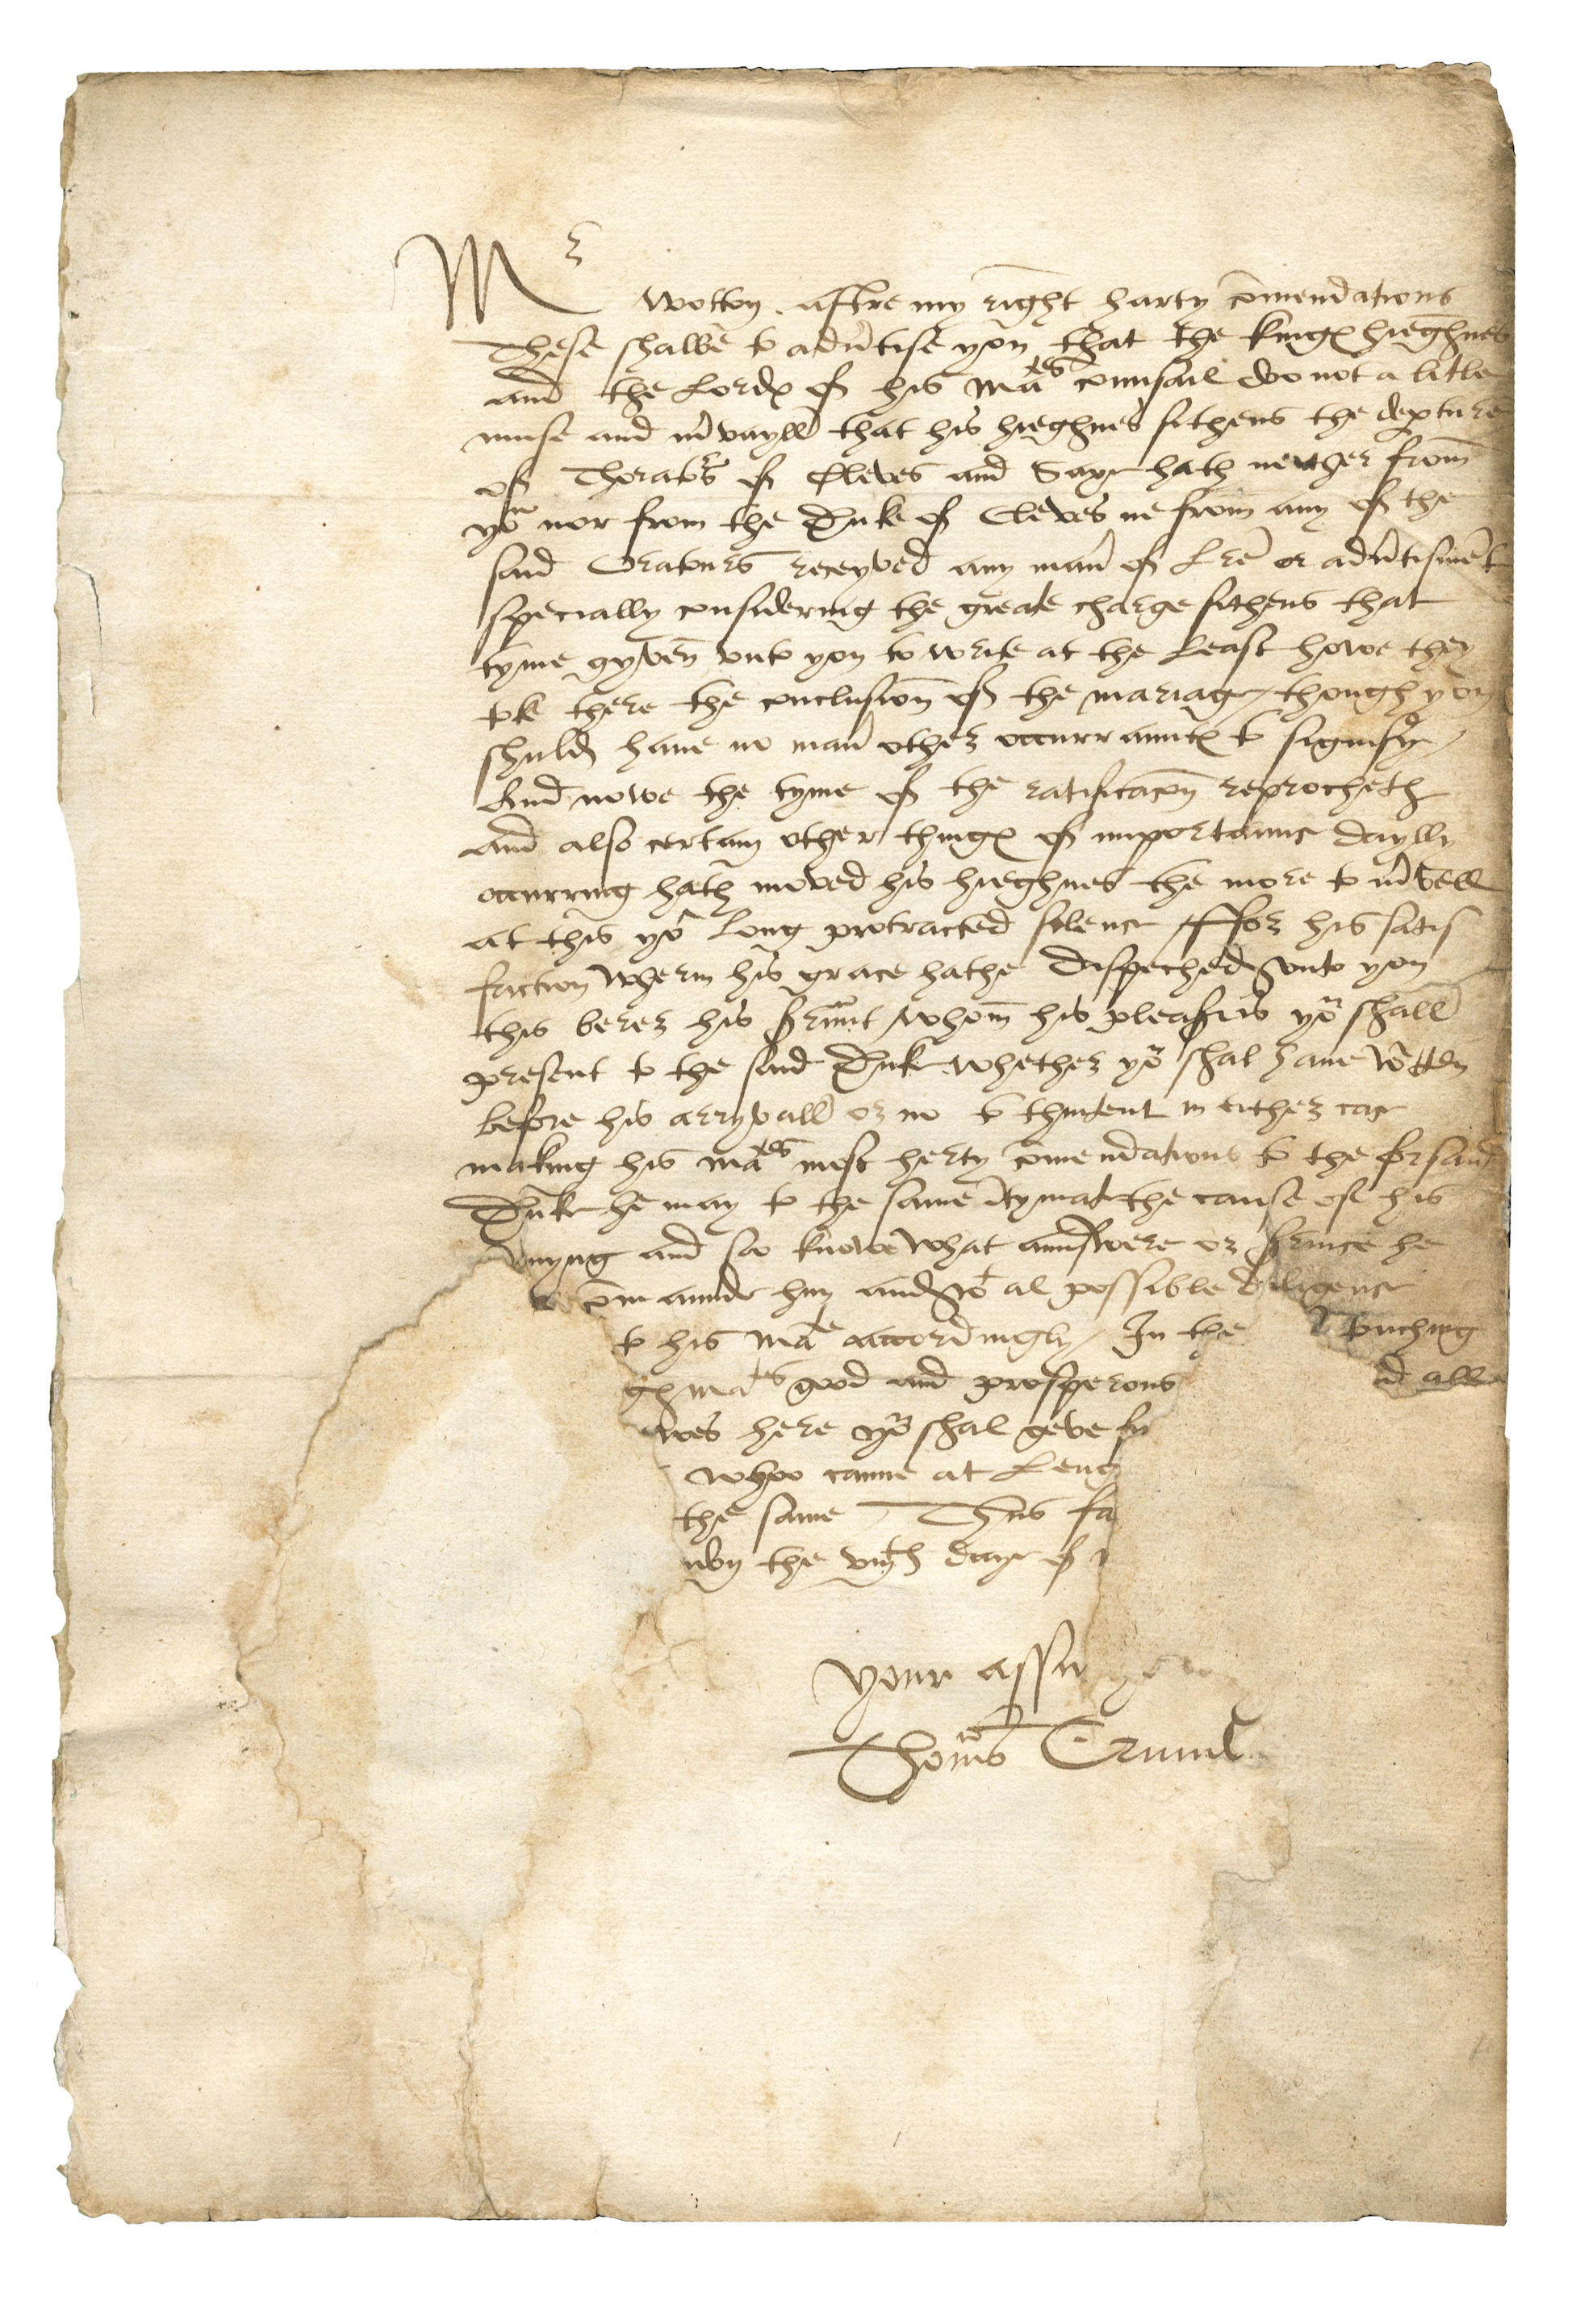 Mr
Wotton. aftre my right harty comendations
These shalbe to advertise you that the kinges hieghnes
and the Lordes of his Mates counsail doo not a litle
muse and mervayll that his hieghnes sithens the departure
of Thorators of Cleves and Saxe hath neither from
you nor from the Duke of Cleves ne from any of the
said Oratours receyved any maner of Lre or advertisment
specially considering the greate charge sithens that
tyme gyven unto you to write at the least howe they
tok there the conclusion of the mariage / though you
shuld have no maner other occurrauntes to signifye /
And nowe the tyme of the ratificacon reprocheth
and also certain other thinges of importaunce daylly
occurring hath moved his hieghnes the more to mervell
at this yor long protracted silence / ffor his satis
faction wherin his grace hathe dispeched unto you
this berer his servaunt / whom his pleasur is you shall
present to the said Duke whether you shal have written
before his arryvall or no to thintent in either case
making his mates most herty comendations to the forsaid
Duke he may to the same intymate the cause ofe his
myng and soo knowe what aunswere or service he
comaunde him and wt al possible diligence
to his Mate accordingly / In the touching
ges mates good and prosperous d all
wes here you shal geve
whoo came at Leng
the same / Thus fa
don the viijth daye of
Your assu
Thomas Crumwell